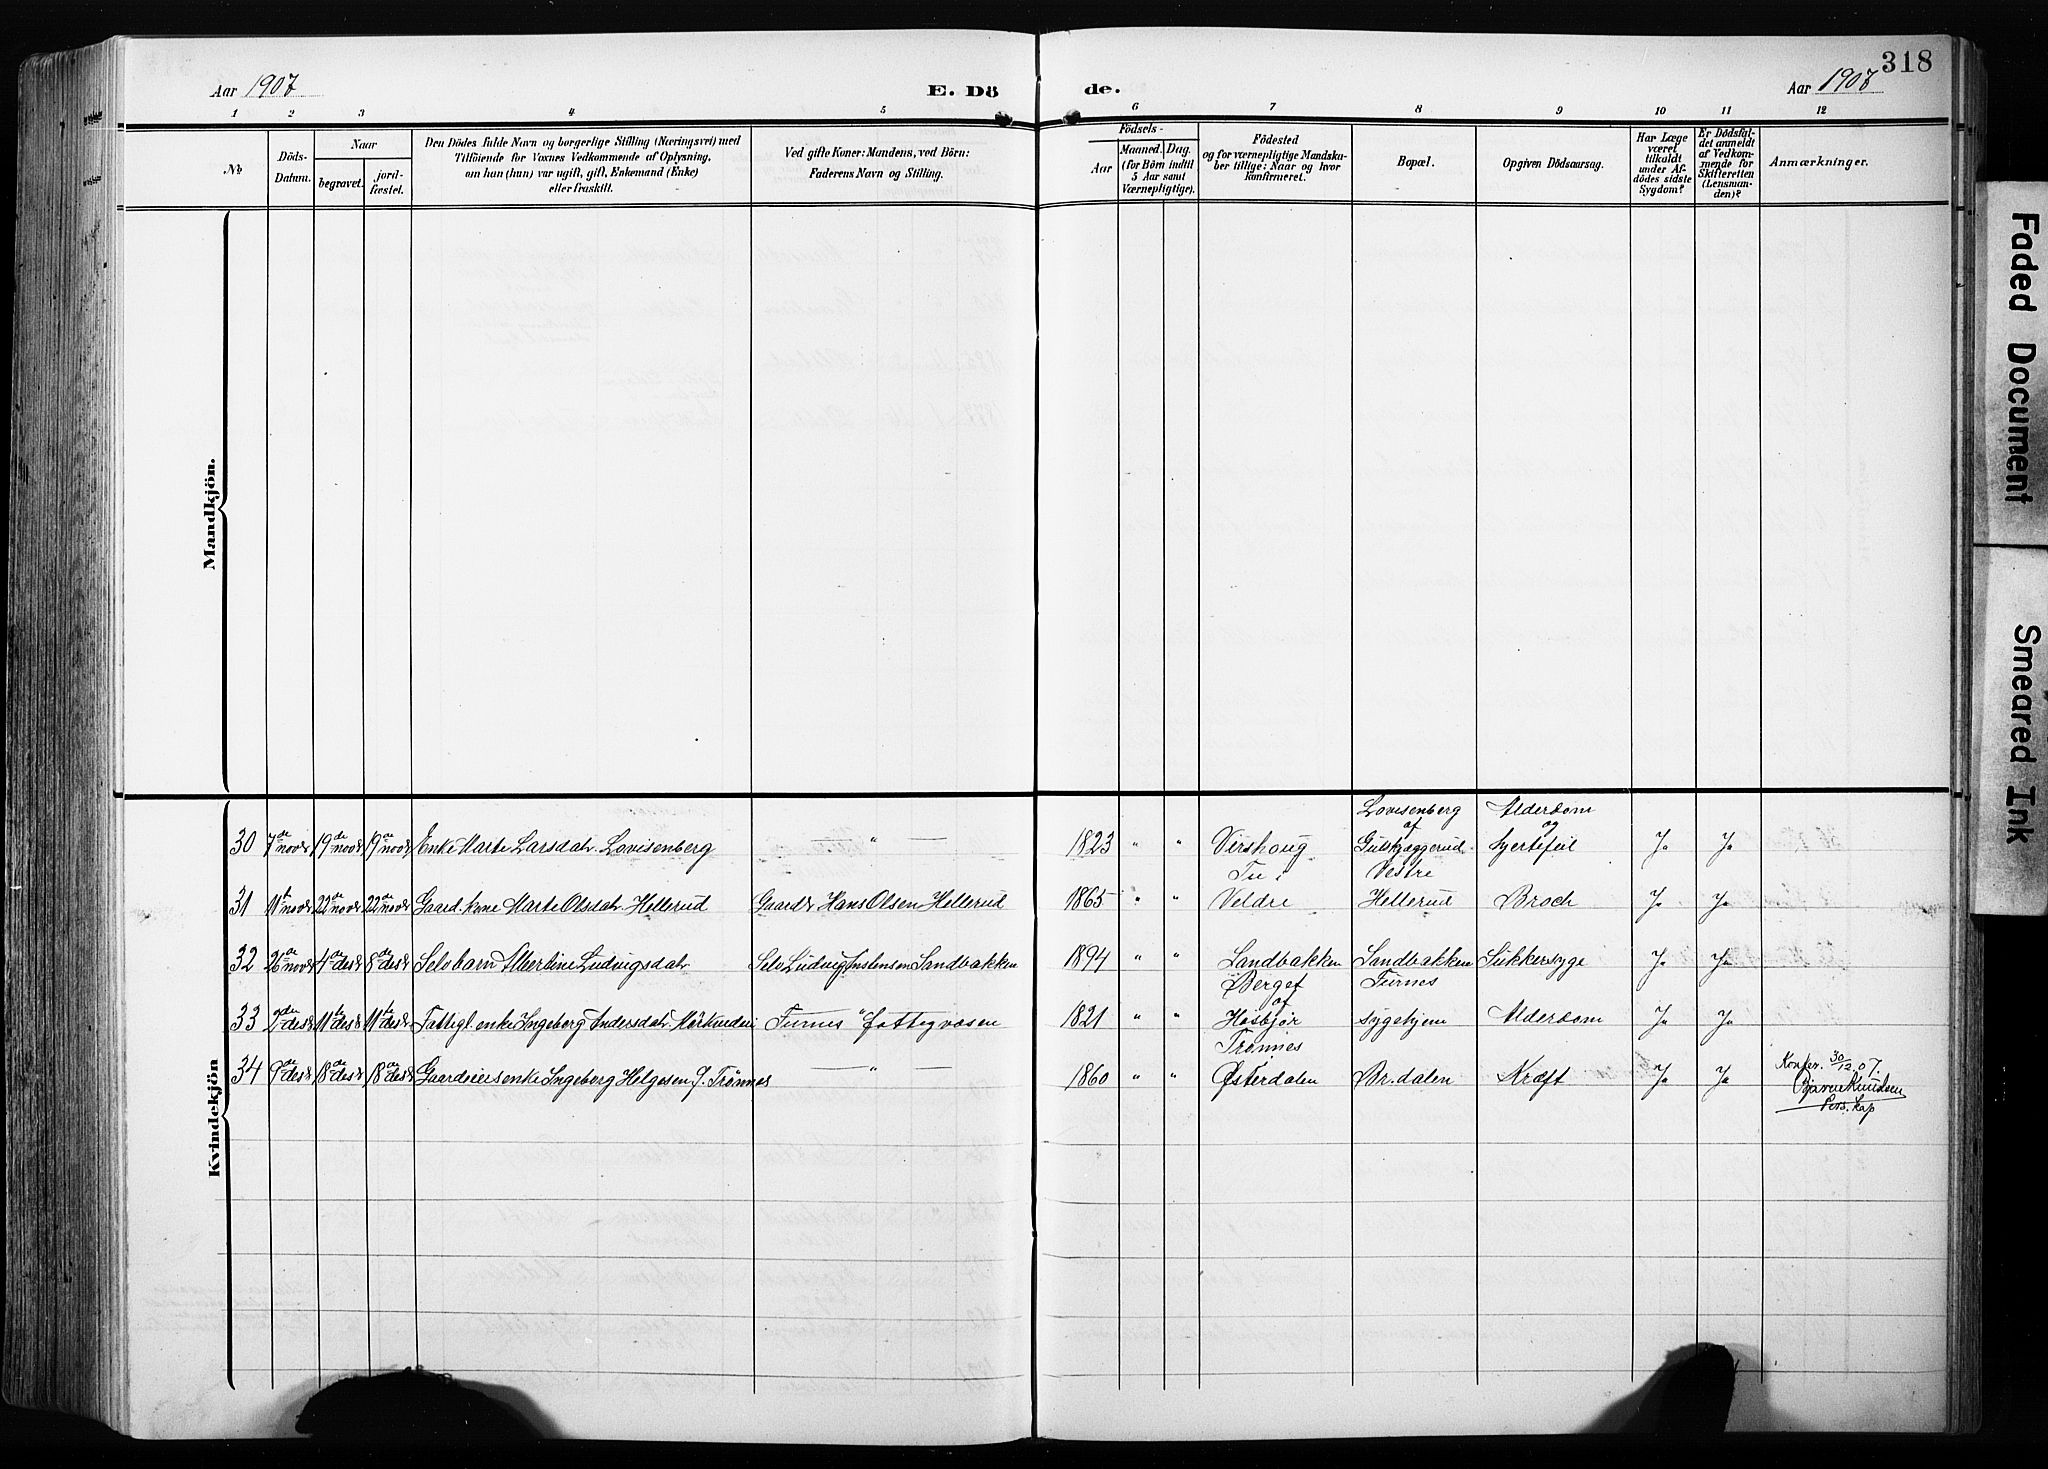 318
Aar 1907 E. Dö de. Aar 1907
1 2 3 4 5 6 7 8 9 10 11 12
No
Döds-Datum.
Naar
begravet.
jord-fæstet.
Den Dödes fulde Navn og borgerlige Stilling (Næringsvei) med
Tilföiende for Voxnes Vedkommende af Oplysning,
om han (hun) var ugift, gift, Enkemand (Enke)
eller fraskilt.
Ved gifte Koner: Mandens, ved Börn:
Faderens Navn og Stilling.
Födsels-
Aar
Maaned. Dag.
(for Börn indtil
5 Aar samt
Værnepligtige).
Födested
og for værnepligtige Mandska-
ber tillige: Naar og hvor
konfirmeret.
Bopæl.
Opgiven Dödsaarsag.
Har Læge
været
tilkaldt
under Af-
dödes sidste
Sygdom?
Er Dödsfal-
det anmeldt
af Vedkom-
mende for
Skifteretten
(Lensman-
den)?
Anmærkninger.
Mandkjön.
Kvindekjön
Lovisenberg Alderdom
af og
30 7de novbr 19de novbr 19de novbr Enke Marte Larsdatr. Lovisenberg — " — 1823 " " Virskoug Gulskjeggerud Hjertefeil Ja Ja
Fu: Vestre
31 11te novbr 22de novbr 22de novbr Gaardk. kone Marte Olsdatr. Hellerud Gaardbr Hans Olsen Hellerud 1865 " " Veldre Hellerud Broch Ja Ja
32 26de novbr 4de desbr 8de desbr Selvbarn Albertine Ludvigsdatr Selv Ludvig Jnslensen Sandbakken 1894 " " Sandbakken Sandbakken Sukkersyge Ja Ja
Berget Furnes
af
33 2den desbr 11te desbr 11te desbr Fattigl. enke Ingeberg Andersdatr Mørkuderi Furnes Fattigvæsen 1821 " " Høsbjør Sygehjem Alderdom Ja Ja
Trønnes
34 9de desbr 18de desbr 18de desbr Gaardeiersenke Ingeberg Helgesen f. Trønnes — " — 1860 " " Østerdalen Br.dalen Kræft Ja Ja
Konfer. 30/12 07.
Bjarne Knudsen
Pers. kap
Faded Document
Smeared Ink